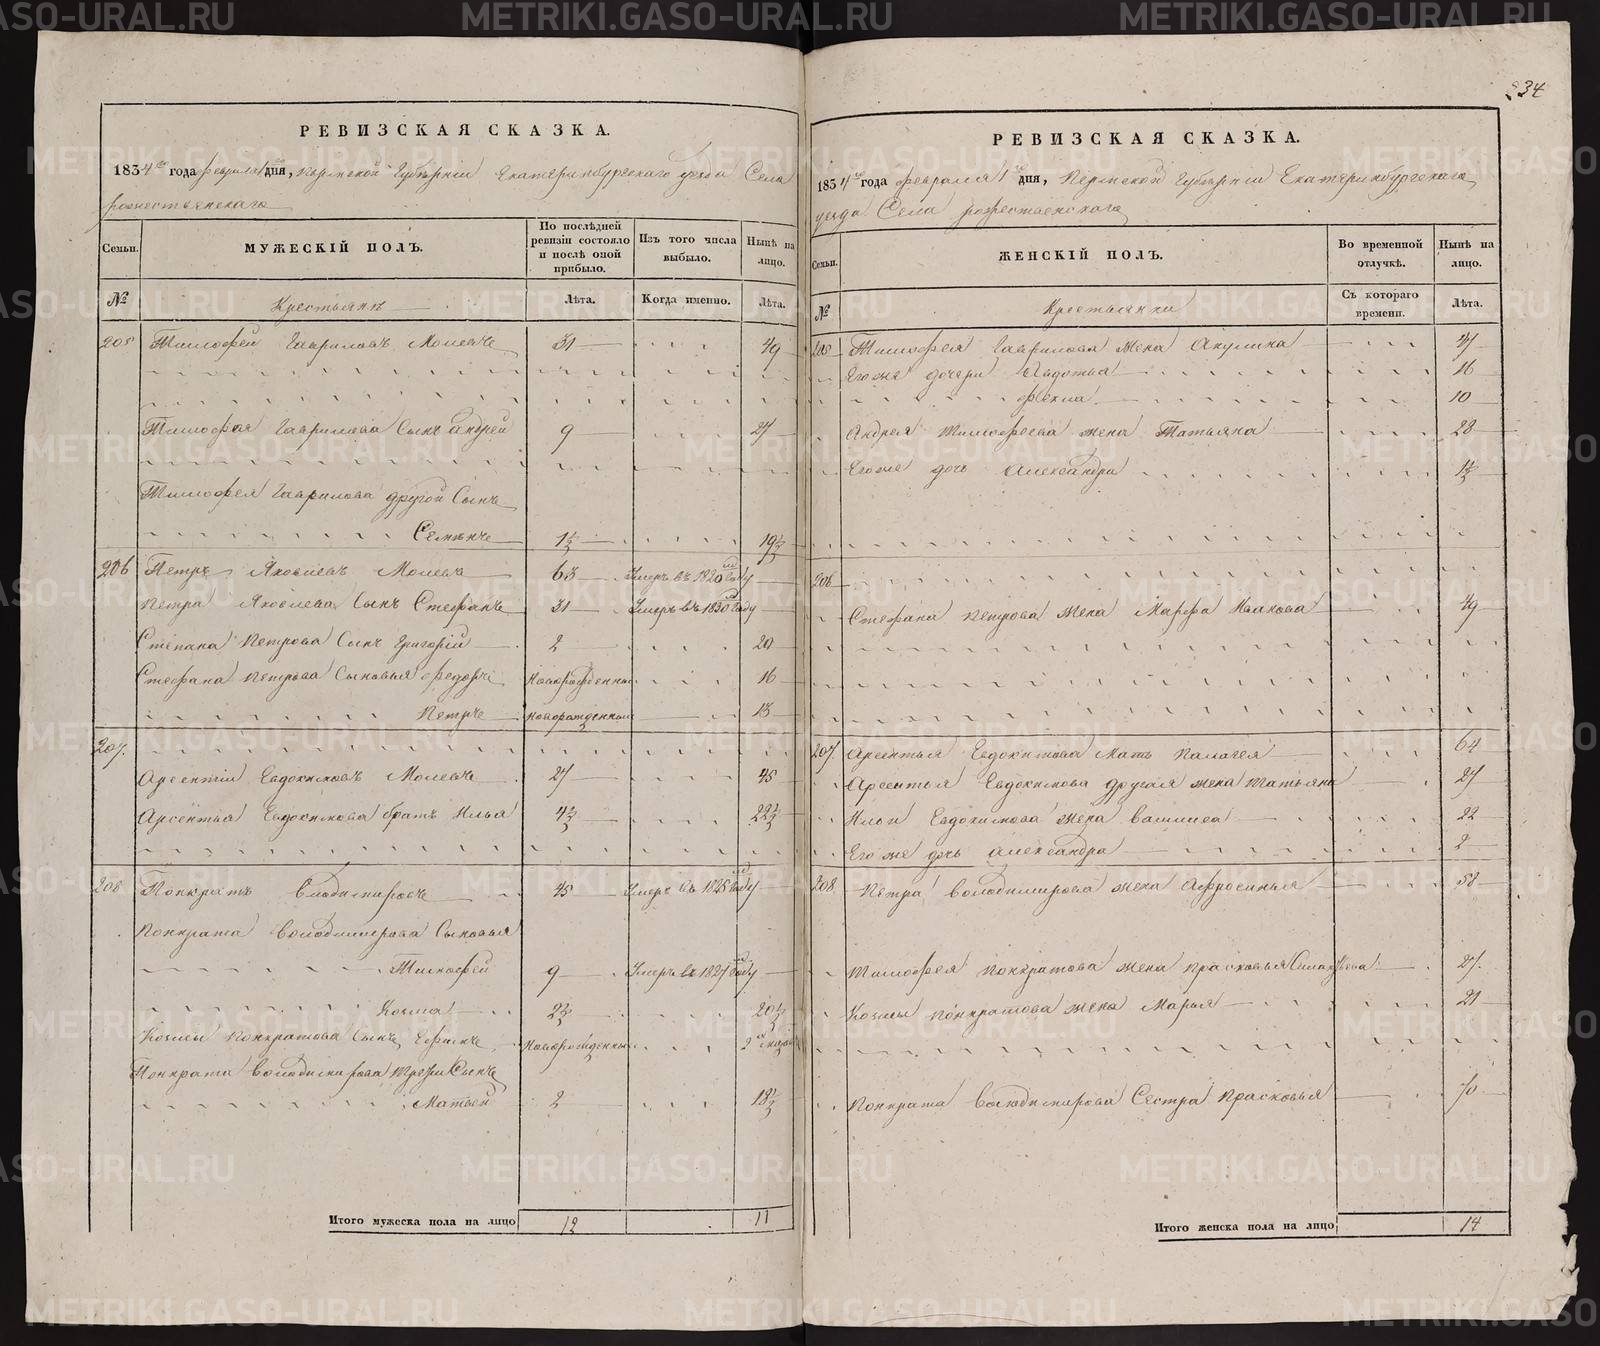 234
РЕВИЗСКАЯ СКАЗКА.
1834го года февраля 1го дня, Пермской Губернiи Екатеринбургскаго уезда Села
рожественскаго
Семьи.
МУЖЕСКIЙ ПОЛЪ.
По послѣдней ревизiи состояло и послѣ оной прибыло.
Изъ того числа выбыло.
Нынѣ на лицо.
№
Крестьяне
Лѣта.
Когда именно.
Лѣта.
205 Тимофей Гавриловъ 31 49
Тимофея Гаврилова Сынъ андрей 9 27
Тимофея Гаврилова другой Сынъ
Семенъ 1½ 19½
206 Петръ Яковлевъ 63 Умеръ въ 1820м году
Петра Яковлева Сынъ Стефанъ 31 Умеръ въ 1830м году
Степана Петрова Сынъ Григорiй 2 20
Стефана Петрова Сыновья федоръ новорожденный 16
Петръ новорожденный 13
207.
Арсентiй Евдокимовъ 27 45
Арсентья Евдокимова братъ Илья 4½ 22½
208 Понкратъ 45 Умеръ въ 1825м году
Понкрата Володимерова Сыновья
Тимофей 9 Умеръ въ 1827м году
Козма 2½ 20½
Козмы Понкратова Сынъ Ефимъ новорожденный 2
Понкрата Володимерова третiй Сынъ
Матвей 2 18½
Итого мужеска пола на лицо 12 11
РЕВИЗСКАЯ СКАЗКА.
1834го года февраля 1го дня, Пермской Губернiи Екатеринбургскаго
уезда Села рожественскаго
Семьи.
ЖЕНСКIЙ ПОЛЪ.
Во временной отлучкѣ.
Нынѣ на лицо.
№
Крестьянки
Съ котораго времени.
Лѣта.
205 Тимофея Гаврилова жена Акулина 47
Его же дочери Авдотья 16
фекла 10
Андрея Тимофеева жена Татьяна 28
Его же дочь Александра 1½
206
Стефана Петрова жена Марфа Иванова 49
207. Арсентья Евдокимова мать Палагея 64
Арсентья Евдокимова другая жена татьяна 27
Ильи Евдокимова жена василиса 22
Его же дочь александра 2
208. Петра Володимирова жена Афросинья 58
Тимофея понкратова жена прасковья 27.
Козмы понкратова жена Марья 21
Понкрата Сестра Прасковья 70
Итого женска пола на лицо 14
METRIKI.GASO-URAL.RU